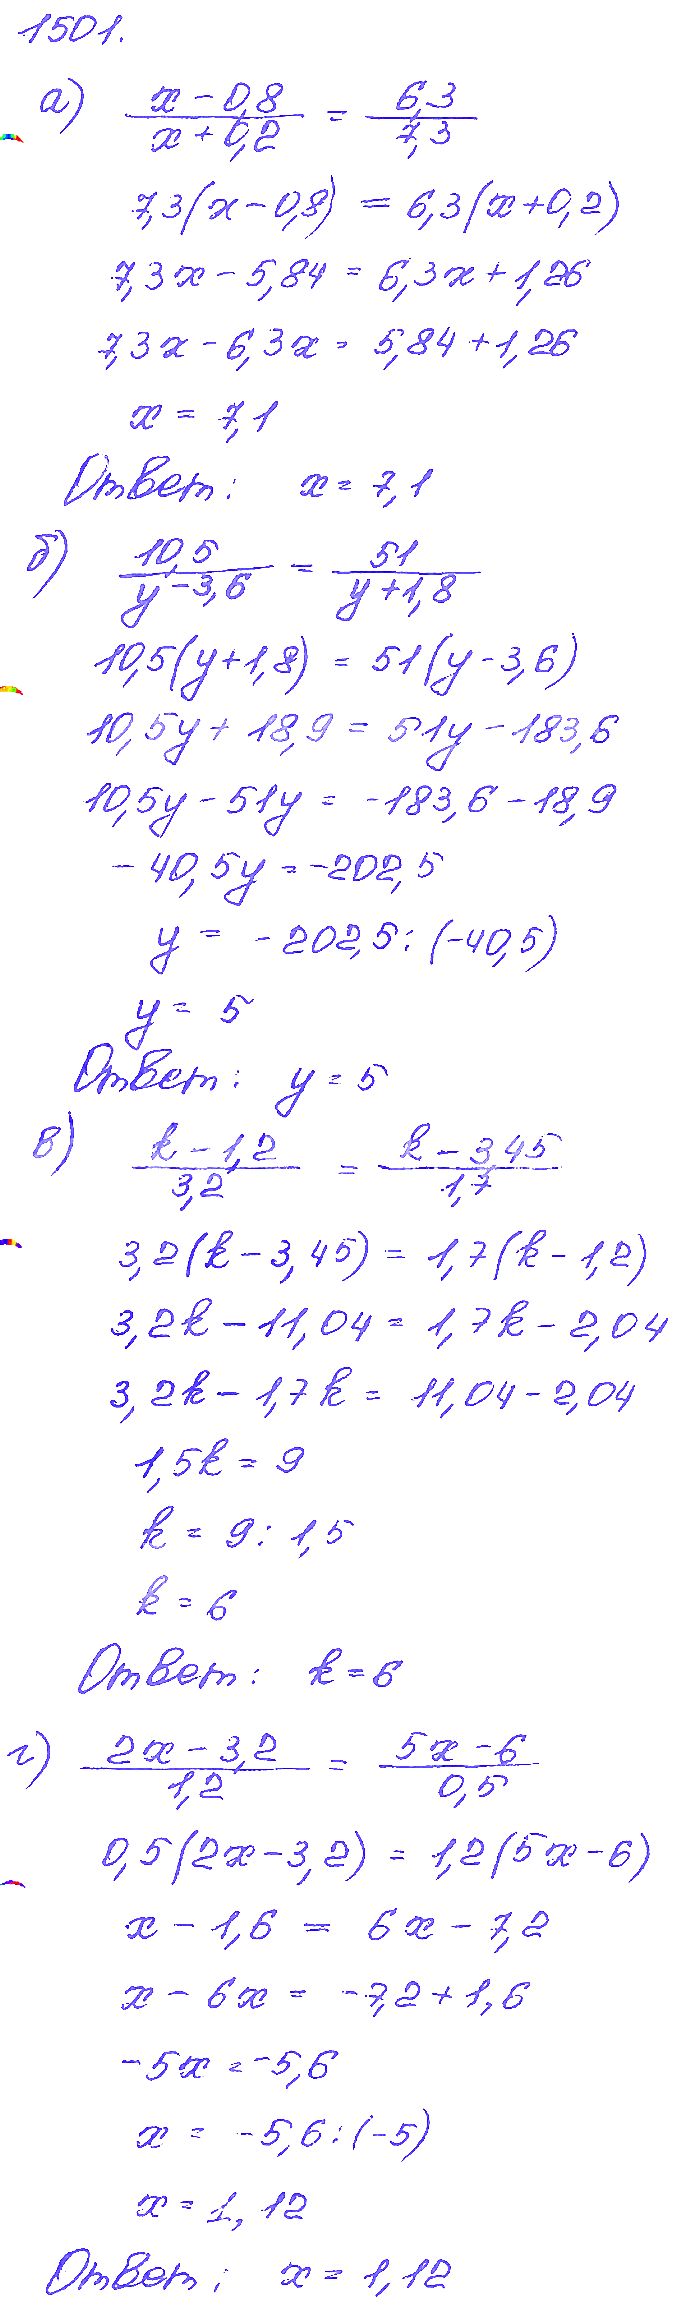 1501.
а) (x - 0,8)/(x + 0,2) = 6,3/7,3
7,3(x - 0,8) = 6,3(x + 0,2)
7,3x - 5,84 = 6,3x + 1,26
7,3x - 6,3x = 5,84 + 1,26
x = 7,1
Ответ: x = 7,1
б) 10,5/(y - 3,6) = 51/(y + 1,8)
10,5(y + 1,8) = 51(y - 3,6)
10,5y + 18,9 = 51y - 183,6
10,5y - 51y = -183,6 - 18,9
-40,5y = -202,5
y = -202,5 : (-40,5)
y = 5
Ответ: y = 5
в) (k - 1,2)/3,2 = (k - 3,45)/1,7
3,2(k - 3,45) = 1,7(k - 1,2)
3,2k - 11,04 = 1,7k - 2,04
3,2k - 1,7k = 11,04 - 2,04
1,5k = 9
k = 9 : 1,5
k = 6
Ответ: k = 6
г) (2x - 3,2)/1,2 = (5x - 6)/0,5
0,5(2x - 3,2) = 1,2(5x - 6)
x - 1,6 = 6x - 7,2
x - 6x = -7,2 + 1,6
-5x = -5,6
x = -5,6 : (-5)
x = 1,12
Ответ: x = 1,12